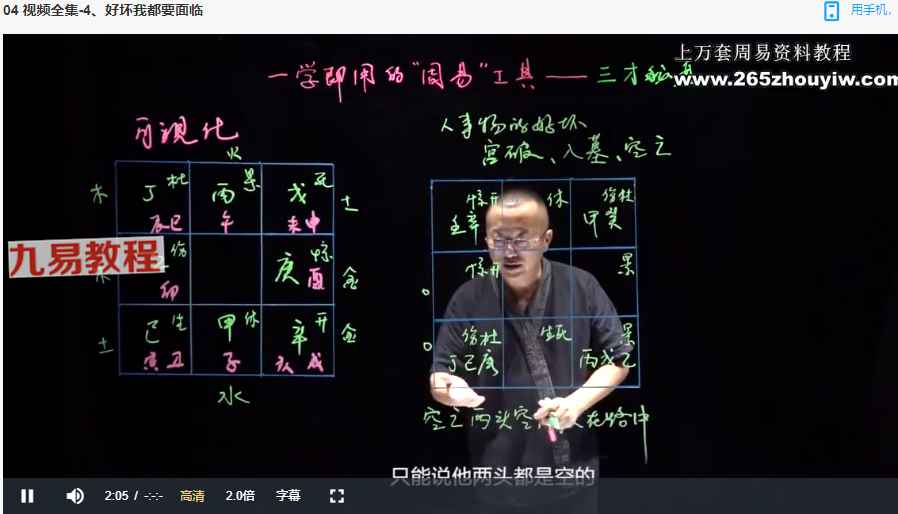 04 视频全集-4、好坏我都要面临
用手机.
上万套周易资料教程
www.265zhouyiw.com
一学即用的"周易"工具——三才
可視化
人事物的好坏
宫破、入墓、空亡
火
木 丁 杜 丙 景 戊 死 土
辰巳 午 未申
伤 庚 惊 金
卯 酉
土 己 生 甲 休 辛 开 金
寅丑 子 亥戌
水
惊开 休 伤杜
壬辛 甲癸
惊开 景
伤杜 生死 景
丁己庚 丙戊乙
空亡两头空 人在路中
九易教程
只能说他两头都是空的
2:05 / -:-:- 高清 2.0倍 字幕